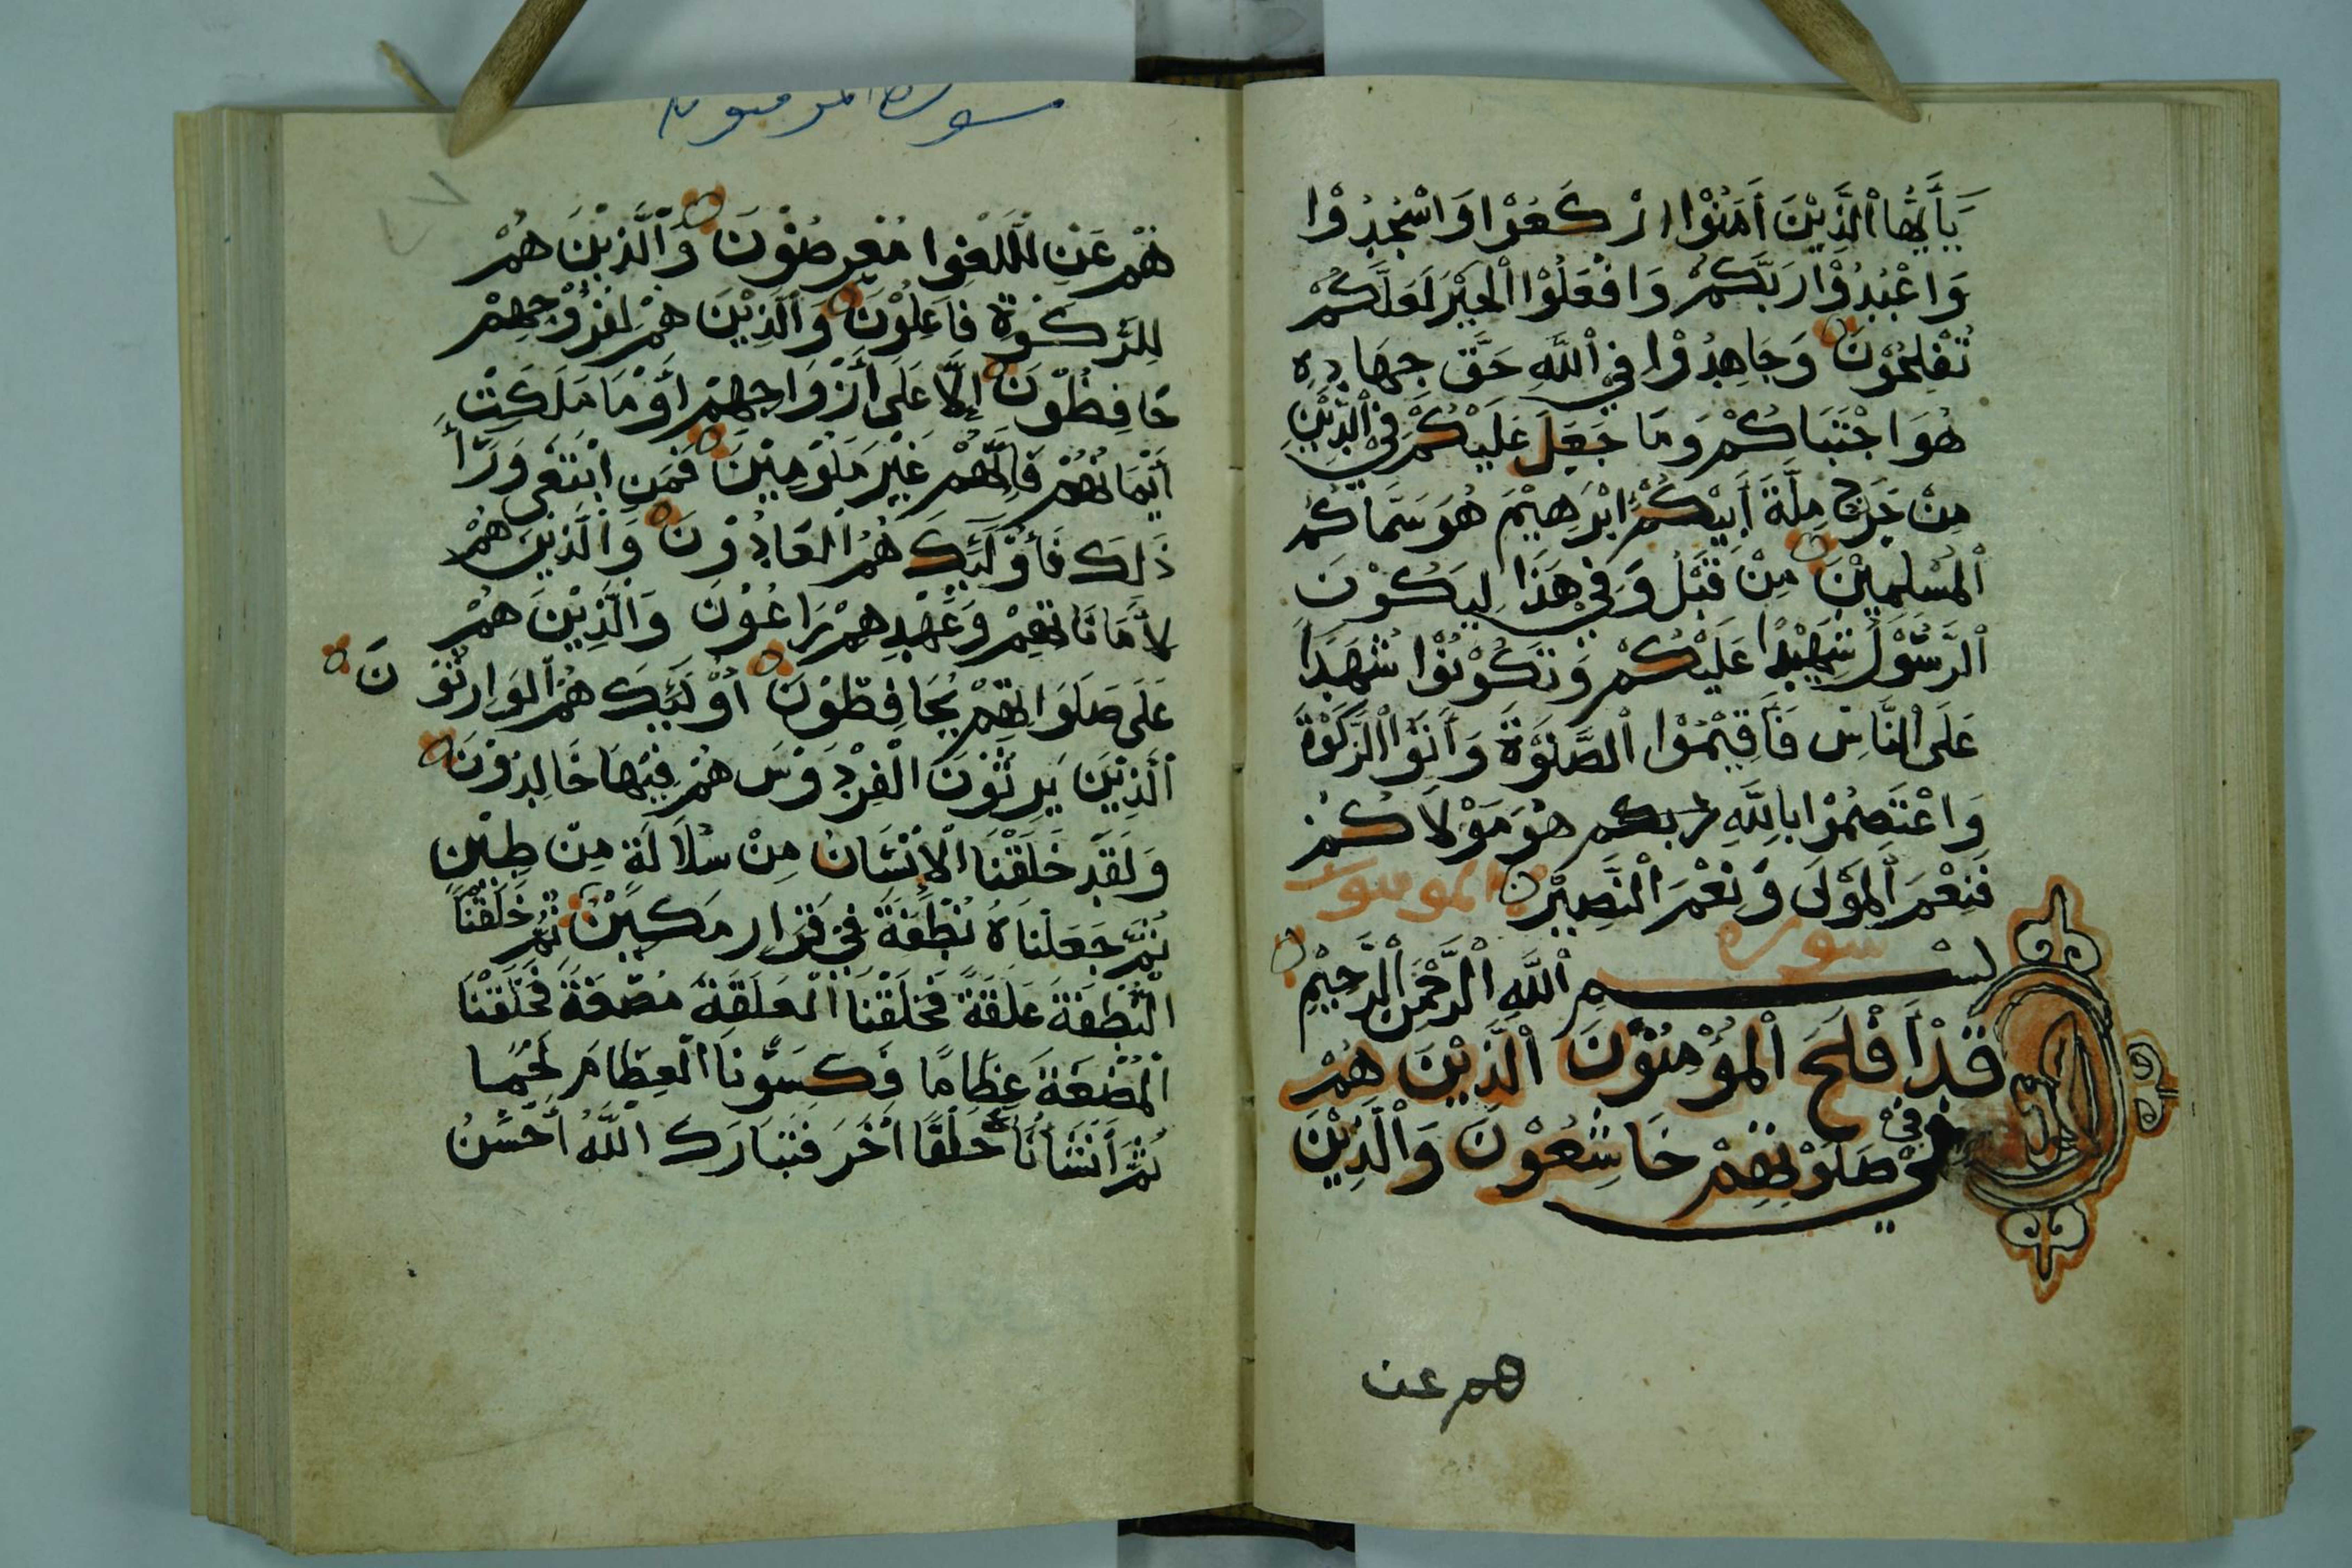 يَأَيُّهَا الَّذِيْنَ أَمَنُوْا ارْكَعُوْا وَاسْجُدُوْا
وَاعْبُدُوْا رَبَّكُمْ وَافْعَلُوْا الْخَيْرَ لَعَلَّكُمْ
تُفْلِحُوْنَ وَجَاهِدُوْا فِي اللَّهِ حَقَّ جِهَادِهِ
هُوَ اجْتَبَاكُمْ وَمَا جَعَلَ عَلَيْكُمْ فِيْ الدِّيْنِ
مِنْ حَرَجٍ مِلَّةَ أَبِيْكُمْ اِبْرَهِيْمَ هُوَ سَمَّاكُمُ
الْمُسْلِمِيْنَ مِنْ قَبْلُ وَفِيْ هَذَا لِيَكُوْنَ
الرَّسُوْلُ شَهِيْدًا عَلَيْكُمْ وَتَكُوْنُوْا شُهَدَا
عَلَى النَّاسِ فَأَقِيْمُوْا الصَّلَوَةَ وَأَتَوْا الزَّكَوَةَ
وَاعْتَصِمُوْا بِاللَّهِ هُوَ مَوْلَاكُمْ
فَنِعْمَ الْمَوْلَى وَنِعْمَ النَّصِيْرُ
سورة المومنون
بِسْمِ اللَّهِ الرَّحْمَنِ الرَّحِيْمِ
قَدْ أَفْلَحَ الْمُؤْمِنُوْنَ الَّذِيْنَ هُمْ
فِيْ صَلَوتِهِمْ خَاشِعُوْنَ وَالَّذِيْنَ
هم عن
سورة المومنون
هُمْ عَنِ اللَّغْوِا مُعْرِضُوْنَ وَالَّذِيْنَ هُمْ
لِلزَّكَوةِ فَاعِلُوْنَ وَالَّذِيْنَ هُمْ لِفُرُوْجِهِمْ
حَافِظُوْنَ إِلَّا عَلَى أَزْوَاجِهِمْ أَوْ مَا مَلَكَتْ
أَيْمَانُهُمْ فَإِنَّهُمْ غَيْرَ مَلُوْمِيْنَ فَمَنِ ابْتَغَى وَرَأَ
ذَلِكَ فَأُوْلَئِكَ هُمُ الْعَادُوْنَ وَالَّذِيْنَ هُمْ
لِأَمَانَاتِهِمْ وَعَهْدِهِمْ رَاعُوْنَ وَالَّذِيْنَ هُمْ
عَلَى صَلَوَاتِهِمْ يُحَافِظُوْنَ أُوْلَئِكَ هُمُ الْوَارِثُوْنَ
الَّذِيْنَ يَرِثُوْنَ الْفِرْدَوْسَ هُمْ فِيْهَا خَالِدُوْنَ
وَلَقَدْ خَلَقْنَا الْإِنْسَانَ مِنْ سُلَالَةٍ مِنْ طِيْنٍ
ثُمَّ جَعَلْنَاهُ نُطْفَةً فِيْ قَرَارٍ مَكِيْنٍ ثُمَّ خَلَقْنَا
النُّطْفَةَ عَلَقَةً فَخَلَقْنَا الْعَلَقَةَ مُضْغَةً فَخَلَقْنَا
الْمُضْغَةَ عِظَامًا فَكَسَوْنَا الْعِظَامَ لَحْمًا
ثُمَّ أَنْشَأْنَاهُ خَلْقًا أَخَرَ فَتَبَارَكَ اللَّهُ أَحْسَنُ